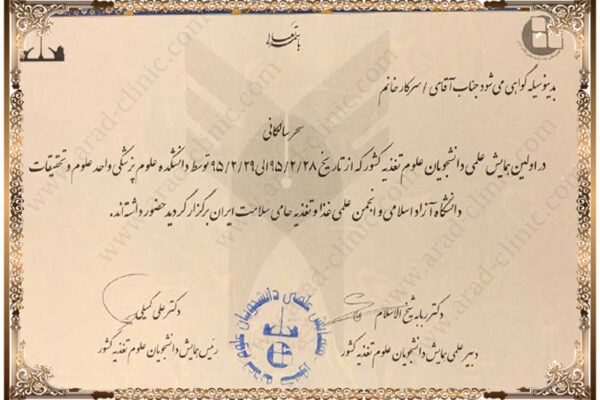 باسمه تعالی
بدینوسیله گواهی می شود جناب آقای / سرکار خانم
سحر سالکانی
در اولین همایش علمی دانشجویان علوم تغذیه کشور که از تاریخ ۹۵/۲/۲۸ الی ۹۵/۲/۲۹ توسط دانشکده علوم پزشکی واحد علوم و تحقیقات
دانشگاه آزاد اسلامی و انجمن علمی غذا و تغذیه حامی سلامت ایران برگزار گردید حضور داشته اند.
دکتر ربابه شیخ الاسلام
دبیر علمی همایش دانشجویان علوم تغذیه کشور
دکتر علی کمیلی
رئیس همایش دانشجویان علوم تغذیه کشور
همایش علمی دانشجویان علوم تغذیه
www.arad-clinic.com